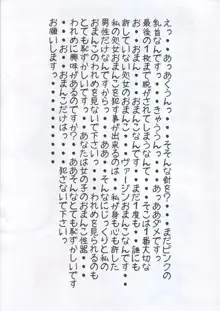 えっ・・あっあくうんっ・・・そそそんな針を？・・・まだピンクの
乳首なんですっ・・・きゃううんっ・・・あっああダメですっ・・
最後の1枚まで脱がされてしまうなんて・・・そこは1番大切な
おっ・・おまっ・・おまんこなんですっ・・まだ1度も・・誰にも
許していない処女のおまんこ・・・ヴァージンおまんこなんですっ・・
私の処女おまんこを犯す事が出来るのは・・私が身も心も許した
男性だけなんですからっ・・ああっ・・そんなにじっくりと私の
おまんこのわれめを見ないで下さい・・・われめを見られるのも
とても恥ずかしいですっ・・・あなたは女の子のおまんこ性器
われめに興味があるのですか？・・ああそんなとても恥ずかしいです
おっ・・おまんこだけはっ・・・・犯さないで下さいっ・・・
お願いしますっ・・・